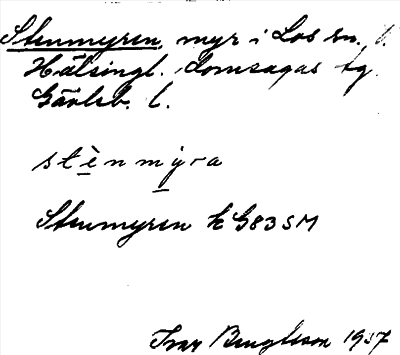 Stenmyren, myr i Los sn.
Hälsingl. Lomsagas tg
Gävleb. l.
stènmỳra
Stenmyren k G83SM
Ivar Bengtsson 1937